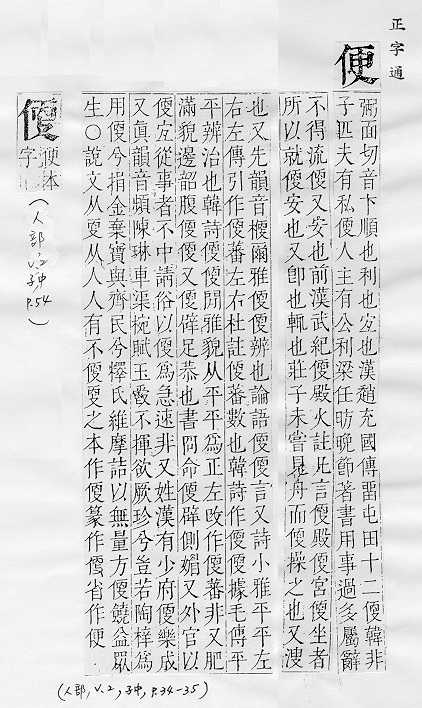 正字通
便
弼面切音卞順也利也宐也漢趙充國傳畱屯田十二𠊳韓非
子匹夫有私𠊳人主有公利梁任昉晚節著書用事過多屬辭
不得流𠊳又安也前漢武紀𠊳殿火註凡言𠊳殿𠊳宮𠊳坐者
所以就𠊳安也又卽也輒也莊子未嘗見舟而𠊳操之也又溲
也又先韻音楩爾雅𠊳𠊳辨也論語𠊳𠊳言又詩小雅平平左
右左傳引作𠊳蕃左右杜註𠊳蕃數也韓詩作𠊳𠊳據毛傳平
平辨治也韓詩𠊳𠊳閒雅貌从平平爲正左攺作𠊳蕃非又肥
滿貌邊韶腹𠊳𠊳又𠊳辟足恭也書冏命𠊳辟側媚又外官以
𠊳宐從事者不中請俗以𠊳爲急速非又姓漢有少府𠊳樂成
又眞韻音頻陳琳車渠椀賦玉爵不揮欲厥珍兮豈若陶梓爲
用𠊳兮指金棄寶與齊民兮釋氏維摩詰以無量方𠊳饒益眾
生○說文从㪅从人人有不𠊳㪅之本作𠊳篆作𠊳省作便
(人部, v.2, 子中, P.34-35)
𠊳
便本
字
(人部 v.2 子中 P.54)